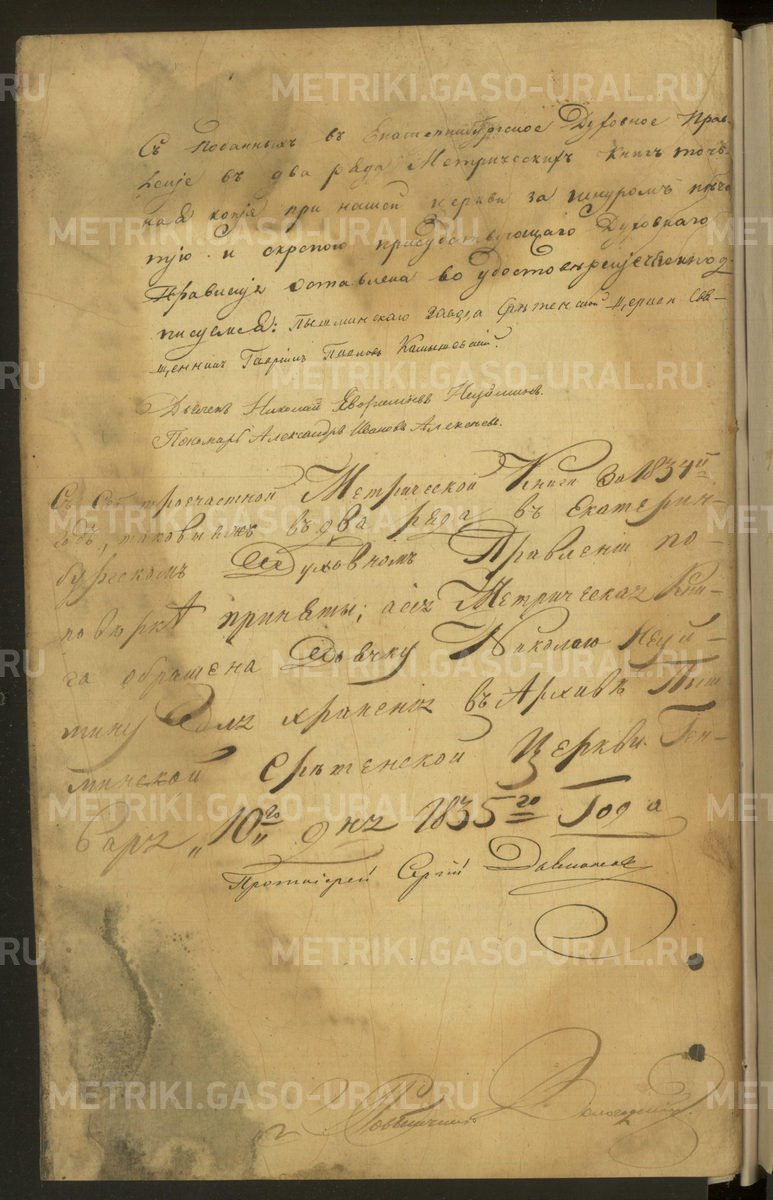 Съ поданныхъ въ Екатеринбургское Духовное Прав-
ленiе въ два ряда Метрическихъ Книгъ точ-
ная копiя при нашей церкви за шнуромъ печа
тью и скрепою присудствующаго Духовнаго
Правленiя оставлена во удостоверенiе чего и под-
писуемся: Пышминскаго завода Сретенской церкви Свя-
щенникъ Гаврiилъ Павловъ Камышевскiй.
Дьячекъ Николай Неуйминъ.
Пономарь Александръ Ивановъ Алексеевъ.
Съ сей троечастной Метрической Книги за 1834й
годъ, таковыяжъ въ два ряда въ Екатерин-
бургскомъ Духовномъ Правленiи по
поверке приняты; а сiя Метрическая Кни-
га обращена Дьячку Николаю Неуй-
мину для храненiя въ Архиве Пыш
минской Сретенской Церкви. Ген-
варя „10го„ дня 1835го Года
Протоiерей Сергiй
METRIKI.GASO-URAL.RU